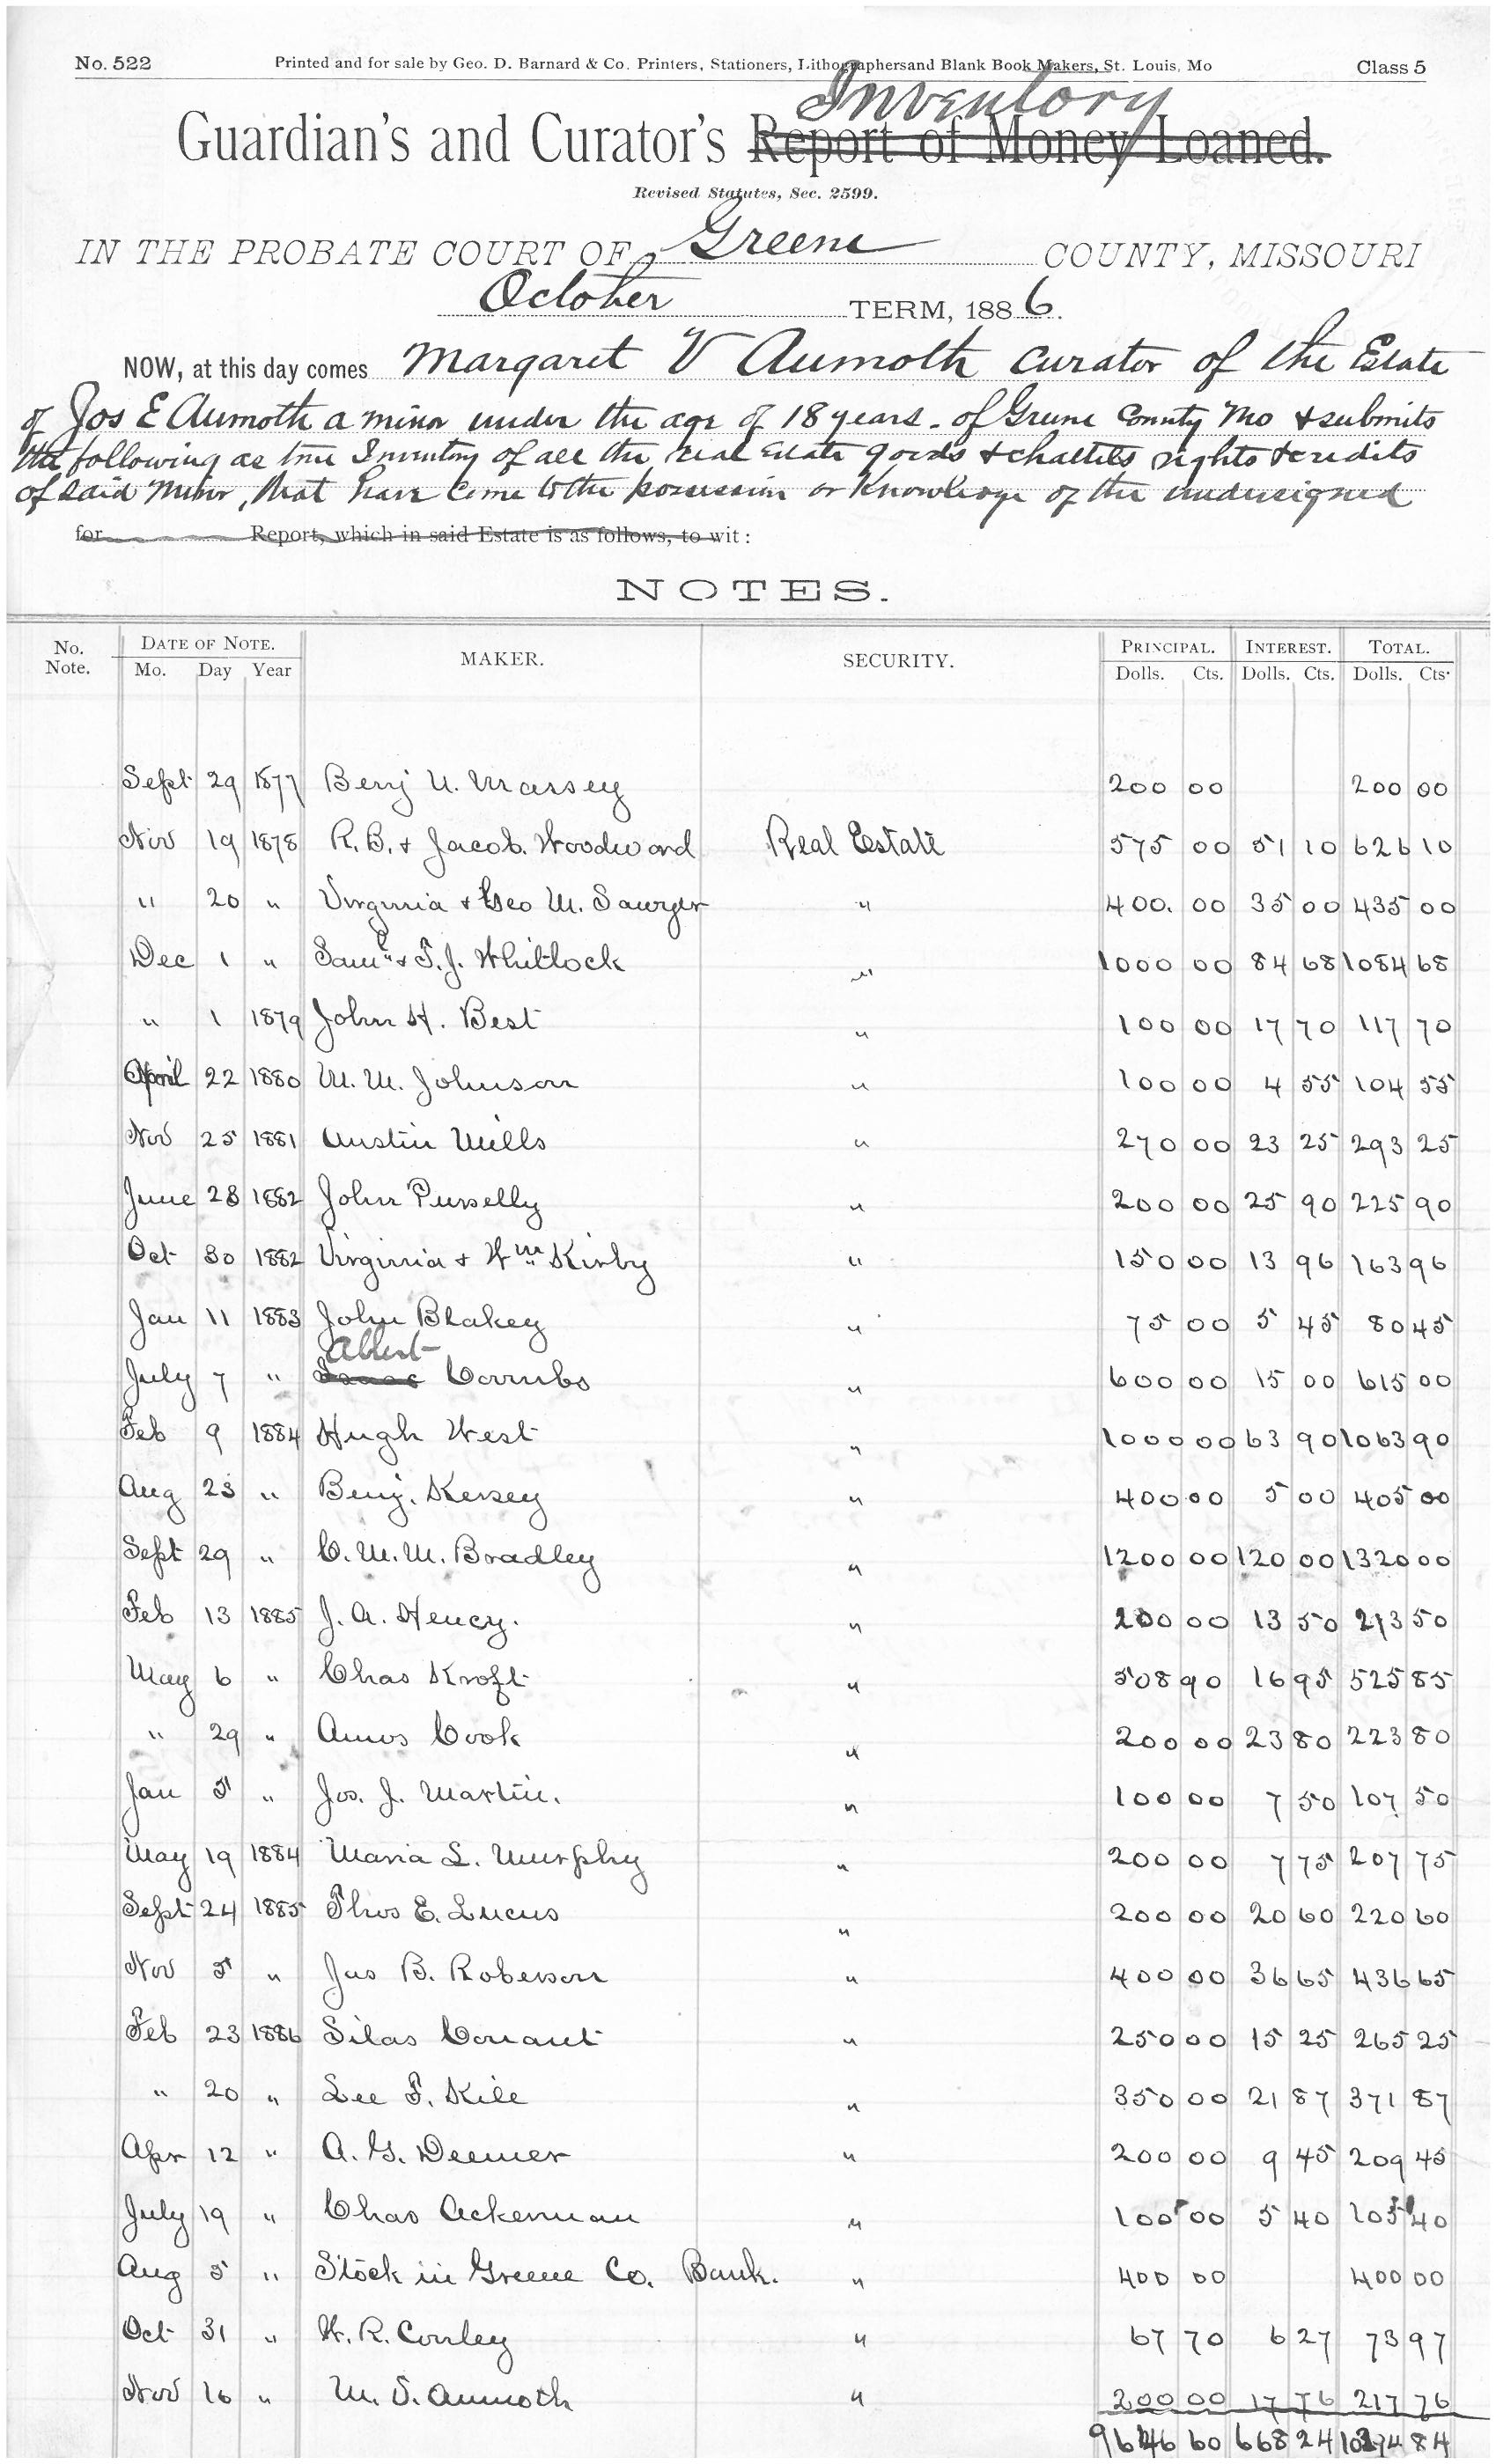 No. 522 Printed and for sale by Geo. D. Barnard & Co. Printers, Stationers, Lithographersand Blank Book Makers, St. Louis, Mo Class 5
Inventory
Guardian's and Curator's Report of Money Loaned.
Revised Statutes, Sec. 2599.
IN THE PROBATE COURT OF Greene COUNTY, MISSOURI
October TERM, 1886.
NOW, at this day comes Margaret V Aumoth Curator of the Estate
of Jos E Aumoth a minor under the age of 18 years - of Greene County Mo & submits
the following as true Inventory of all the real Estate goods & chattels rights & credits
of said Minor, that have Come to the possession or Knowledge of the undersigned
for Report, which in said Estate is as follows, to wit:
NOTES.
No. Note. DATE OF NOTE. MAKER. SECURITY. PRINCIPAL. INTEREST. TOTAL.
Mo. Day Year Dolls. Cts. Dolls. Cts. Dolls. Cts.
Sept 29 1877 Benj U. Massey 200 00 200 00
Nov 19 1878 R. B. & Jacob. Woodward Real Estate 575 00 51 10 626 10
" 20 " Virginia & Geo M. Sawyer " 400. 00 35 00 435 00
Dec 1 " Saml & T. J. Whitlock " 1000 00 84 68 1084 68
" 1 1879 John H. Best " 100 00 17 70 117 70
April 22 1880 M. M. Johnson " 100 00 4 55 104 55
Nov 25 1881 Austin Mills " 270 00 23 25 293 25
June 28 1882 John Purselly " 200 00 25 90 225 90
Oct 30 1882 Virginia & Wm Kirby " 150 00 13 96 163 96
Jan 11 1883 John Blakey " 75 00 5 45 80 45
Albert
July 7 " Isaac Combs " 600 00 15 00 615 00
Feb 9 1884 Hugh West " 1000 00 63 90 1063 90
Aug 23 " Benj. Kersey " 400 00 5 00 405 00
Sept 29 " C. M. M. Bradley " 1200 00 120 00 1320 00
Feb 13 1885 J. A. Hency. " 200 00 13 50 213 50
May 6 " Chas Kroft " 508 90 16 95 525 85
" 29 " Amos Cook " 200 00 23 80 223 80
Jan 5 " Jos. J. Martin. " 100 00 7 50 107 50
May 19 1884 Maria L. Murphy " 200 00 7 75 207 75
Sept 24 1885 Thos E. Lucus " 200 00 20 60 220 60
Nov 5 " Jas B. Roberson " 400 00 36 65 436 65
Feb 23 1886 Silas Conant " 250 00 15 25 265 25
" 20 " Lee T. Kile " 350 00 21 87 371 87
Apr 12 " A. G. Deemer " 200 00 9 45 209 45
July 19 " Chas Ackerman " 100 00 5 40 105 40
Aug 5 " Stock in Greene Co. Bank. " 400 00 400 00
Oct 31 " W. R. Conley " 67 70 6 27 73 97
Nov 16 " M. V. Aumoth " 200 00 17 76 217 76
9646 60 668 24